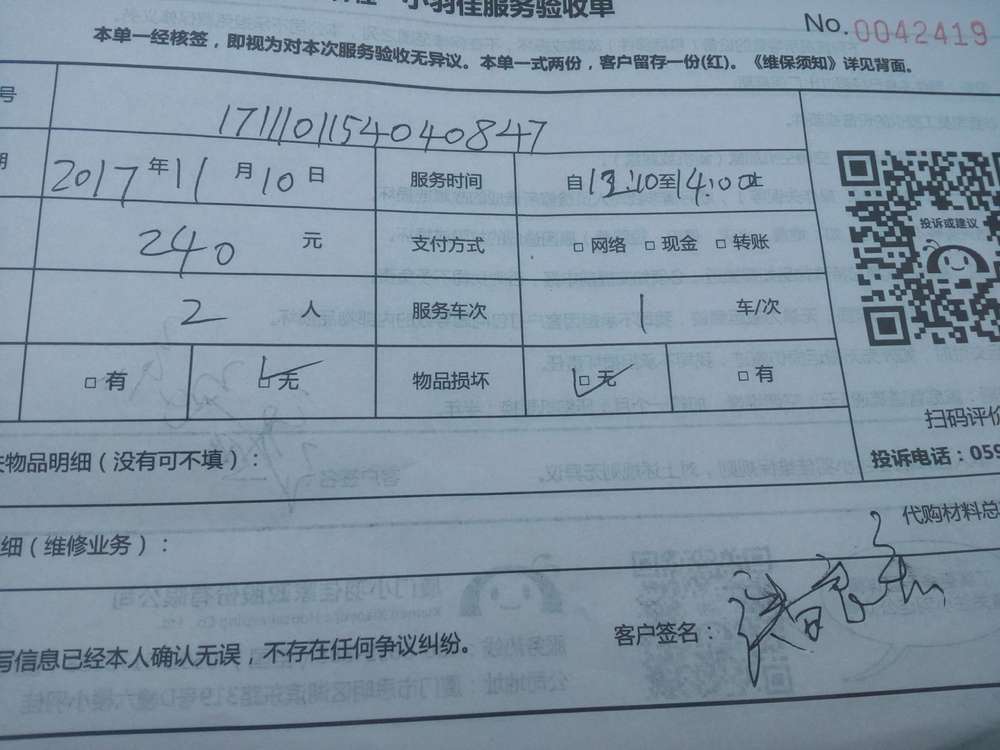 小羽佳服务验收单
No. 0042419
本单一经核签，即视为对本次服务验收无异议。本单一式两份，客户留存一份(红)。《维保须知》详见背面。
号 1711101154040847
期 2017年11月10日 服务时间 自13:10至14:00止
240元 支付方式 □网络 □现金 □转账
2人 服务车次 1车/次
□有 □无 物品损坏 □无 □有
投诉或建议
扫码评价
投诉电话：059
物品明细（没有可不填）：
细（维修业务）： 代购材料总
写信息已经本人确认无误，不存在任何争议纠纷。 客户签名：